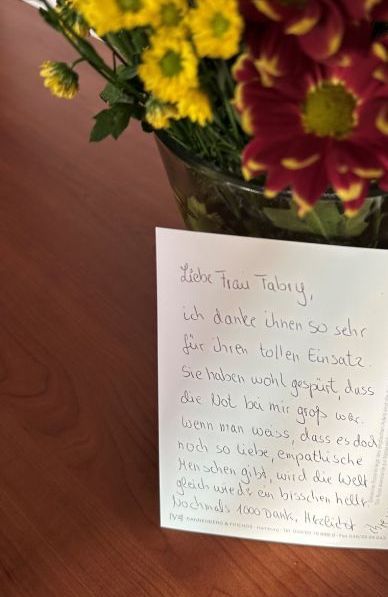 Liebe Frau Tabry,
ich danke ihnen so sehr
für ihren tollen Einsatz.
Sie haben wohl gespürt, dass
die Not bei mir groß war.
Wenn man weiss, dass es doch
noch so liebe, empathische
Menschen gibt, wird die Welt
gleich wieder ein bisschen heller.
Nochmals 1000 Dank, Herzlichst
DANNENBERG & FRIENDS · Hamburg · Tel